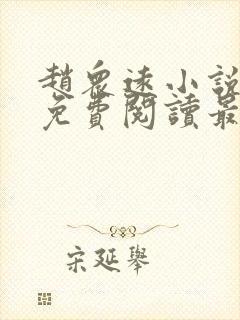 趙眾遠小說
免費閱讀最
宋延舉